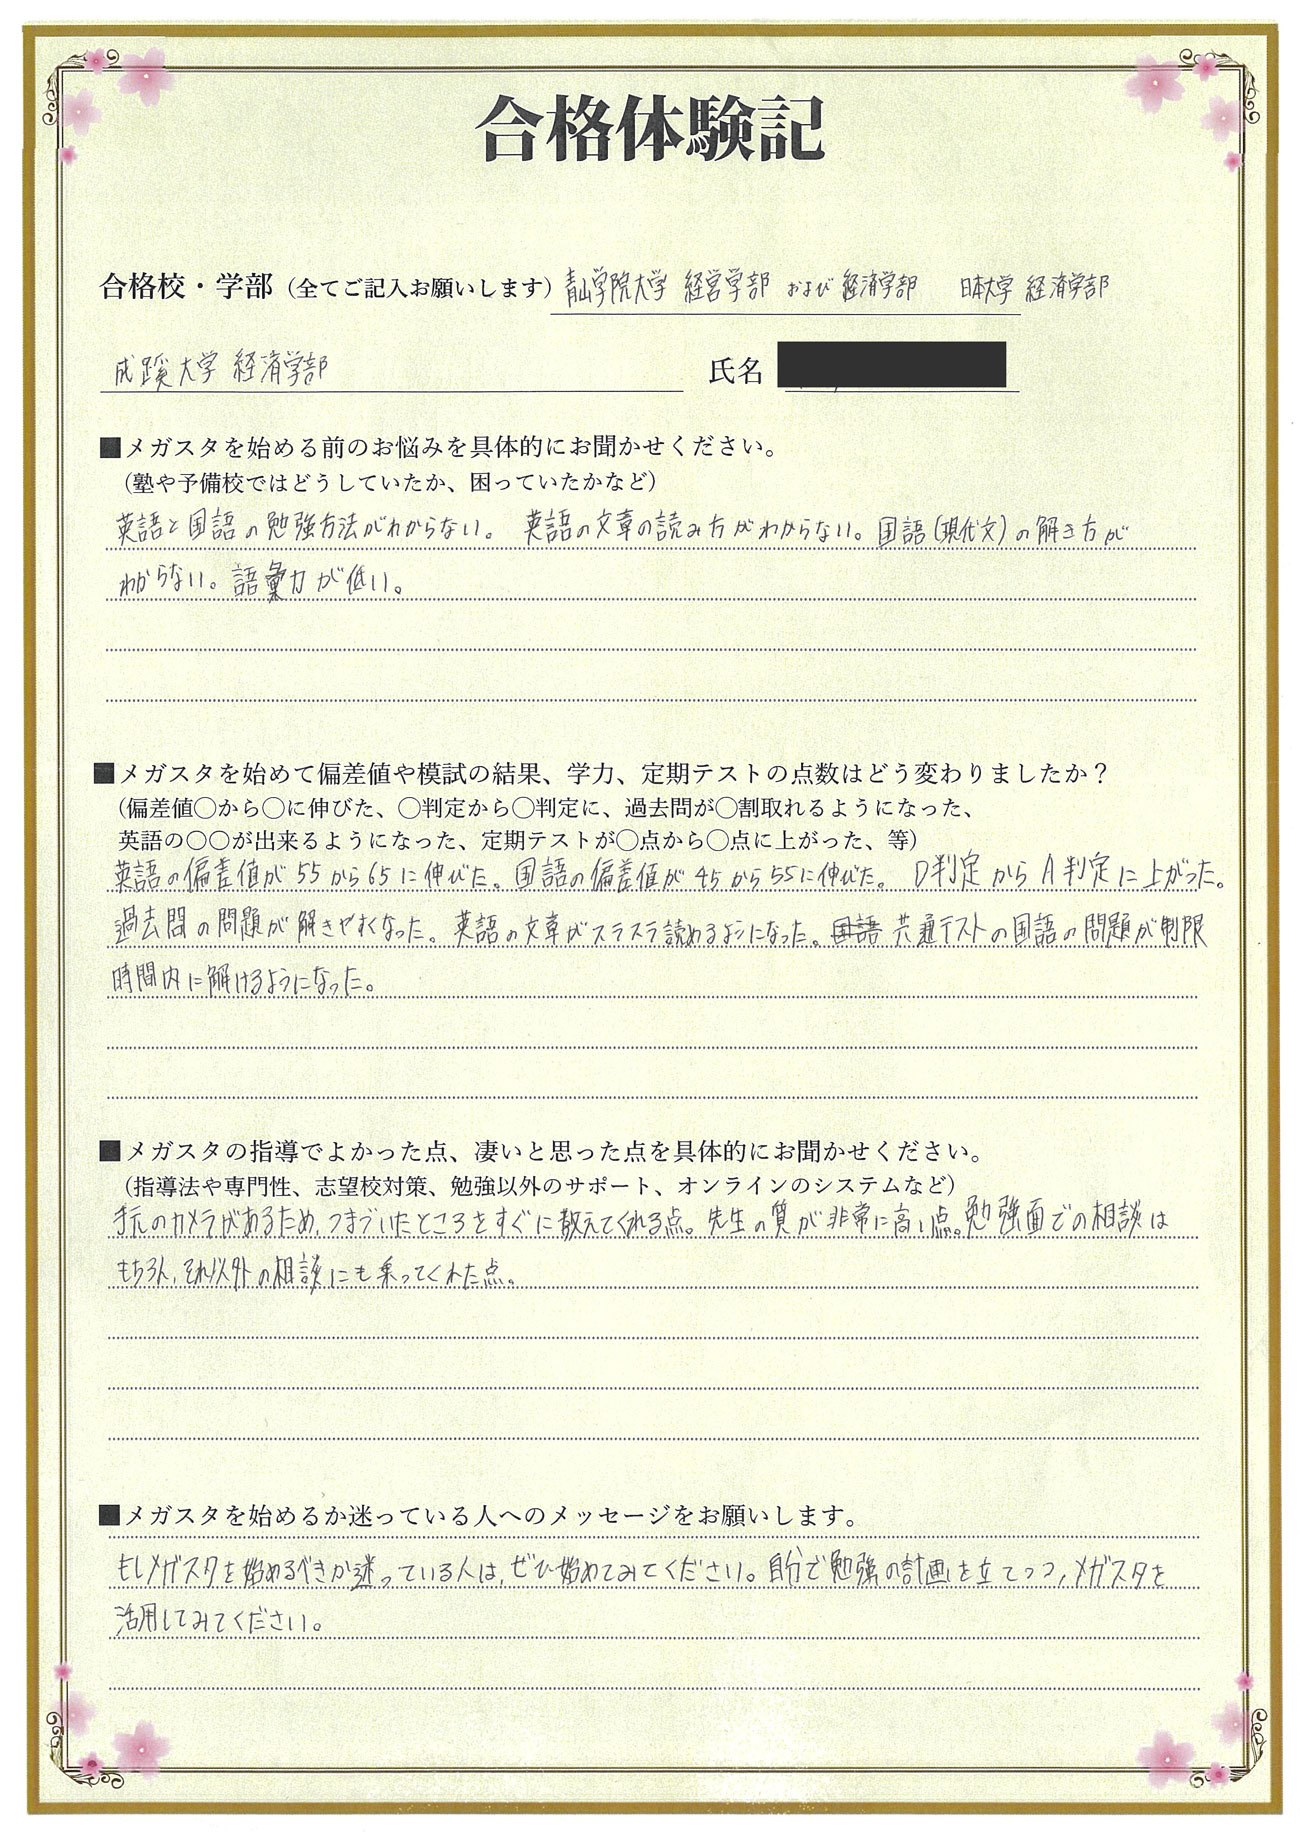 合格体験記
合格校・学部（全てご記入お願いします）青山学院大学 経営学部 および 経済学部 日本大学 経済学部
成蹊大学 経済学部 氏名
■メガスタを始める前のお悩みを具体的にお聞かせください。
（塾や予備校ではどうしていたか、困っていたかなど）
英語と国語の勉強方法がわからない。英語の文章の読み方がわからない。国語(現代文)の解き方が
わからない。語彙力が低い。
■メガスタを始めて偏差値や模試の結果、学力、定期テストの点数はどう変わりましたか？
（偏差値〇から〇に伸びた、〇判定から〇判定に、過去問が〇割取れるようになった、
英語の〇〇が出来るようになった、定期テストが〇点から〇点に上がった、等）
英語の偏差値が55から65に伸びた。国語の偏差値が45から55に伸びた。D判定からA判定に上がった。
過去問の問題が解きやすくなった。英語の文章がスラスラ読めるようになった。国語 共通テストの国語の問題が制限
時間内に解けるようになった。
■メガスタの指導でよかった点、凄いと思った点を具体的にお聞かせください。
（指導法や専門性、志望校対策、勉強以外のサポート、オンラインのシステムなど）
手元のカメラがあるため、つまづいたところをすぐに教えてくれる点。先生の質が非常に高い点。勉強面での相談は
もちろん、それ以外の相談にも乗ってくれた点。
■メガスタを始めるか迷っている人へのメッセージをお願いします。
もしメガスタを始めるべきか迷っている人は、ぜひ始めてみてください。自分で勉強の計画を立てつつ、メガスタを
活用してみてください。